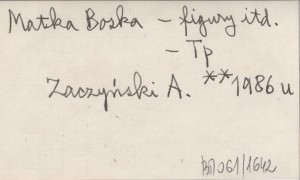 Matka Boska – figury itd.
– Tp
Zaczyński A. **1986 u
1642